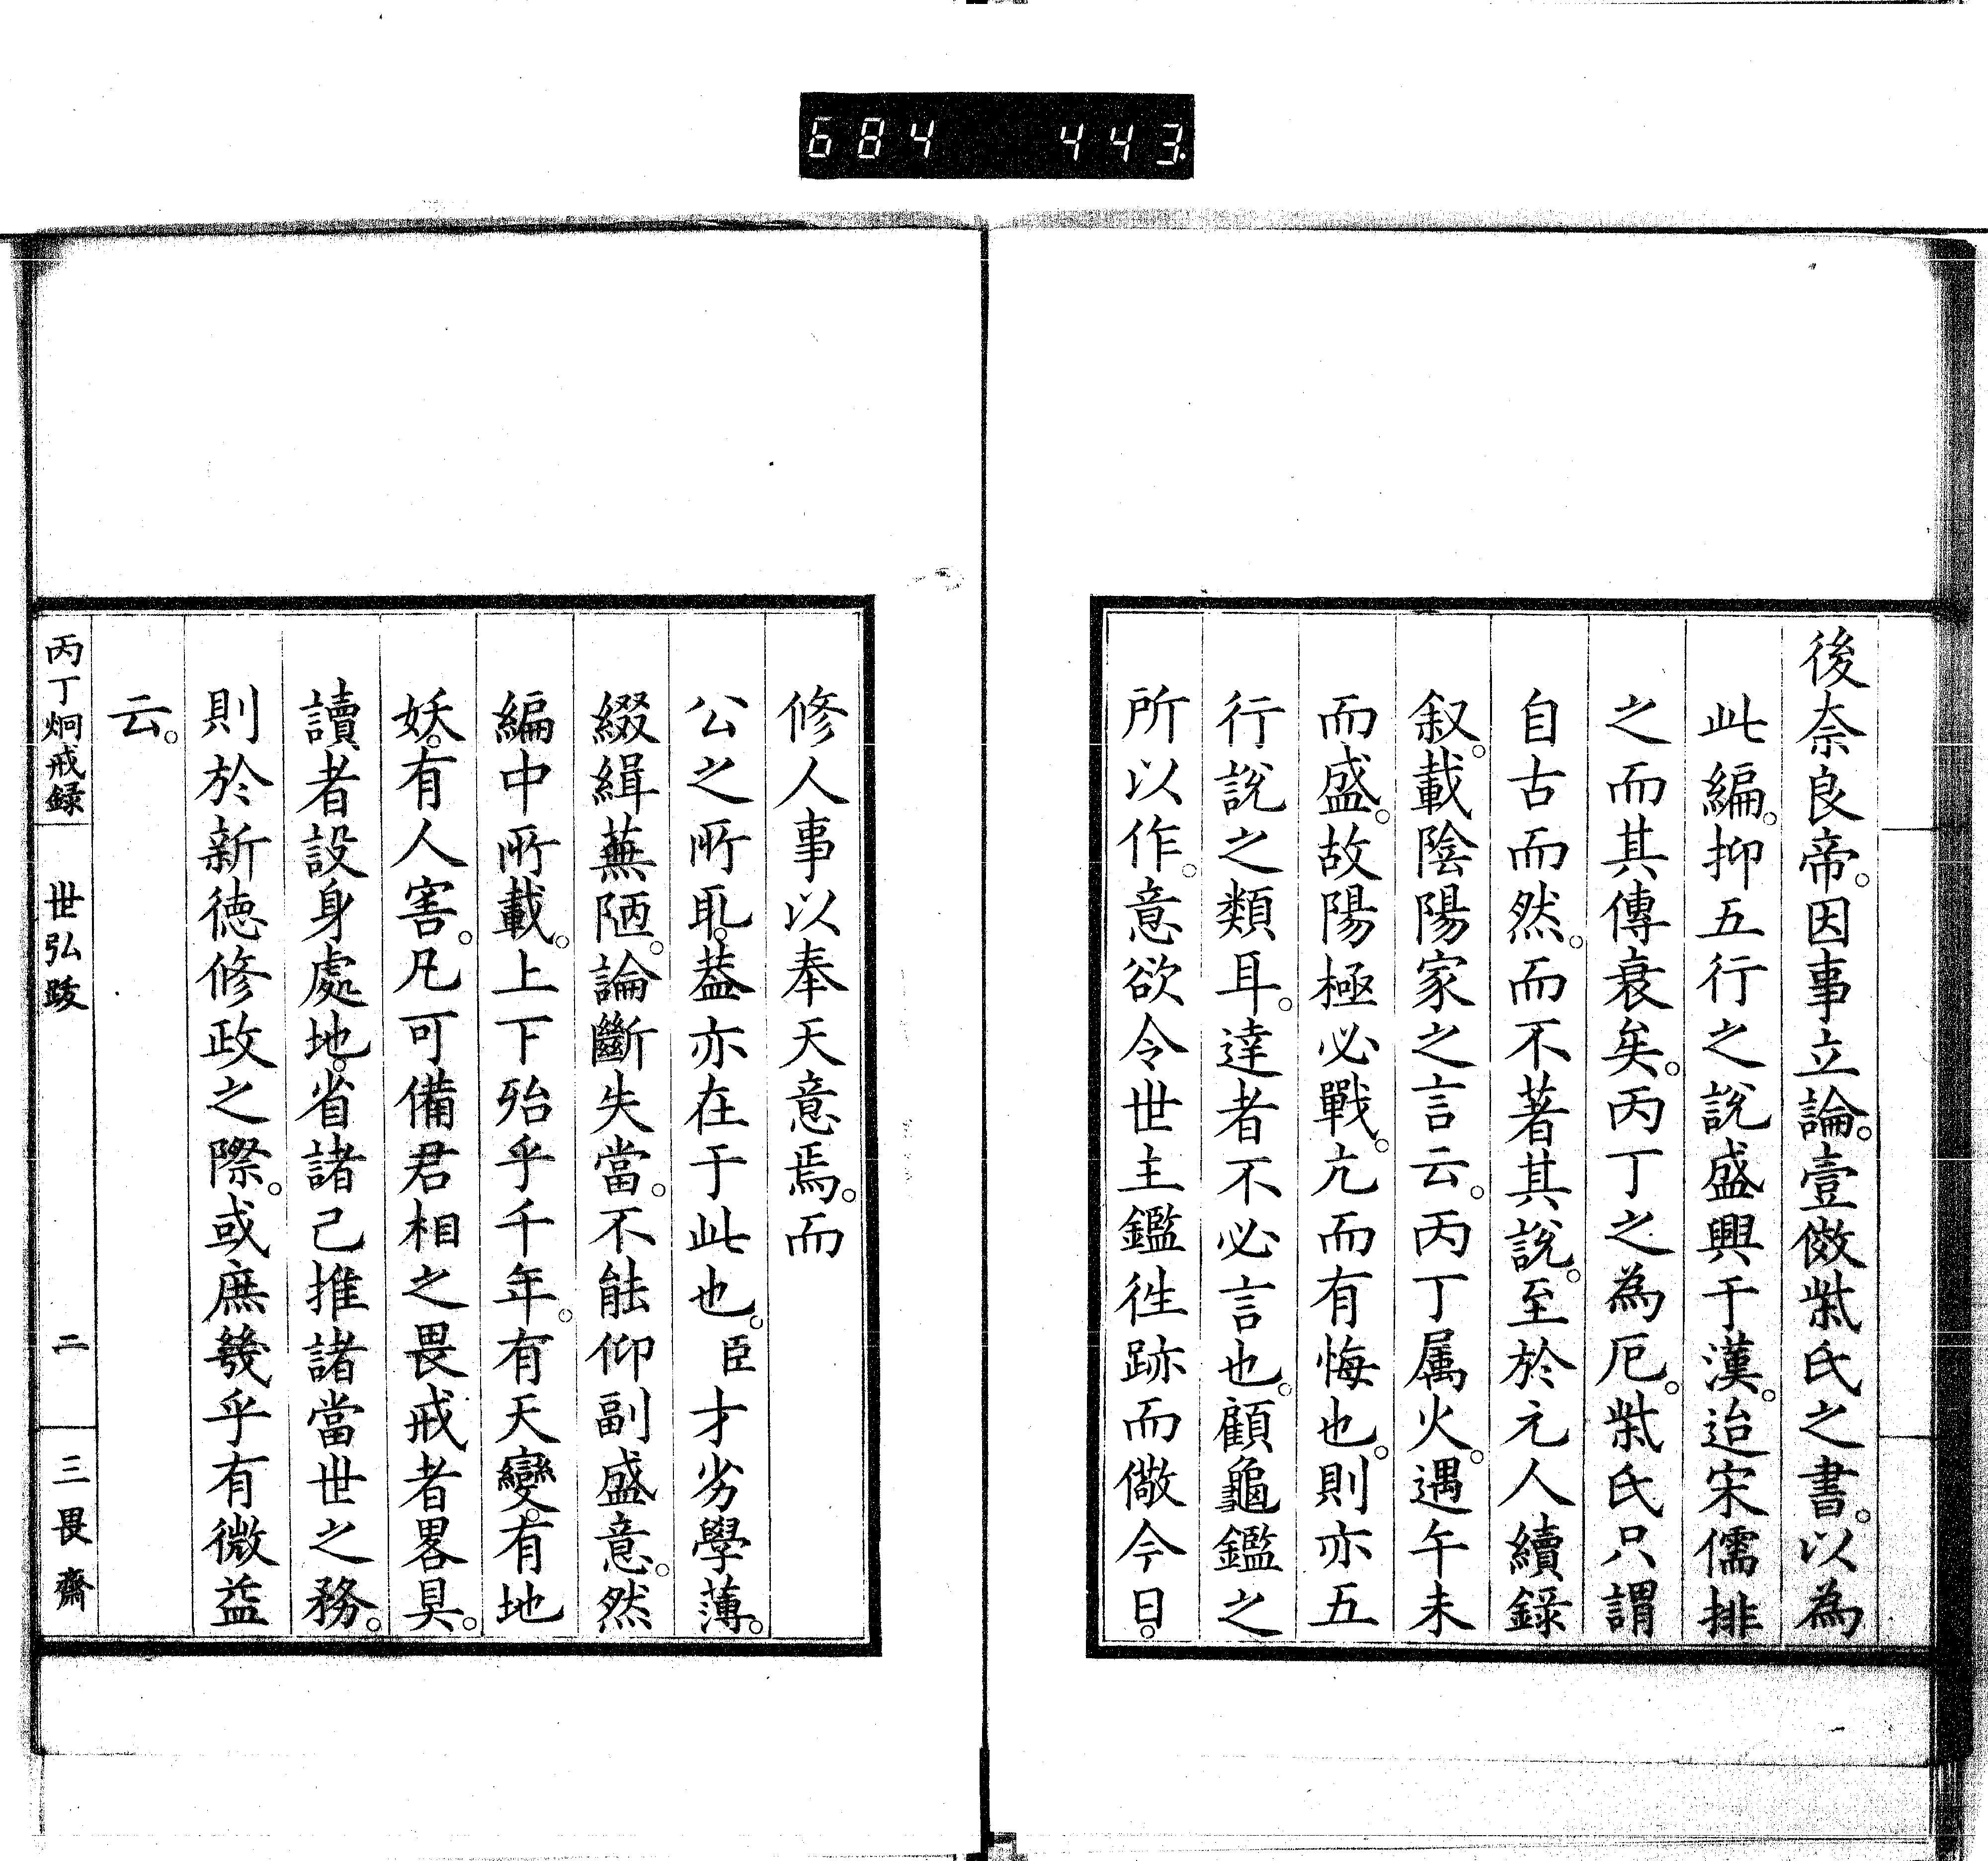 684 443
後奈良帝。因事立論。壹倣柴氏之書。以為
此編。抑五行之說盛興于漢。迨宋儒排
之而其傳衰矣。丙丁之為厄。柴氏只謂
自古而然。而不著其說。至於元人續錄
叙。載陰陽家之言云。丙丁属火。遇午未
而盛。故陽極必戰。亢而有悔也。則亦五
行說之類耳。達者不必言也。顧龜鑑之
所以作。意欲令世主鑑徃跡而儆今日。
修人事以奉天意焉。而
公之所耴。葢亦在于此也。臣才劣學薄。
綴緝蕪陋。論斷失當。不能仰副盛意。然
編中所載。上下殆乎千年。有天變。有地
妖。有人害。凡可備君相之畏戒者畧具。
讀者設身處地。省諸己推諸當世之務。
則於新徳修政之際。或庶幾乎有微益
云。
丙丁炯戒録 世弘跋 二 三畏齋